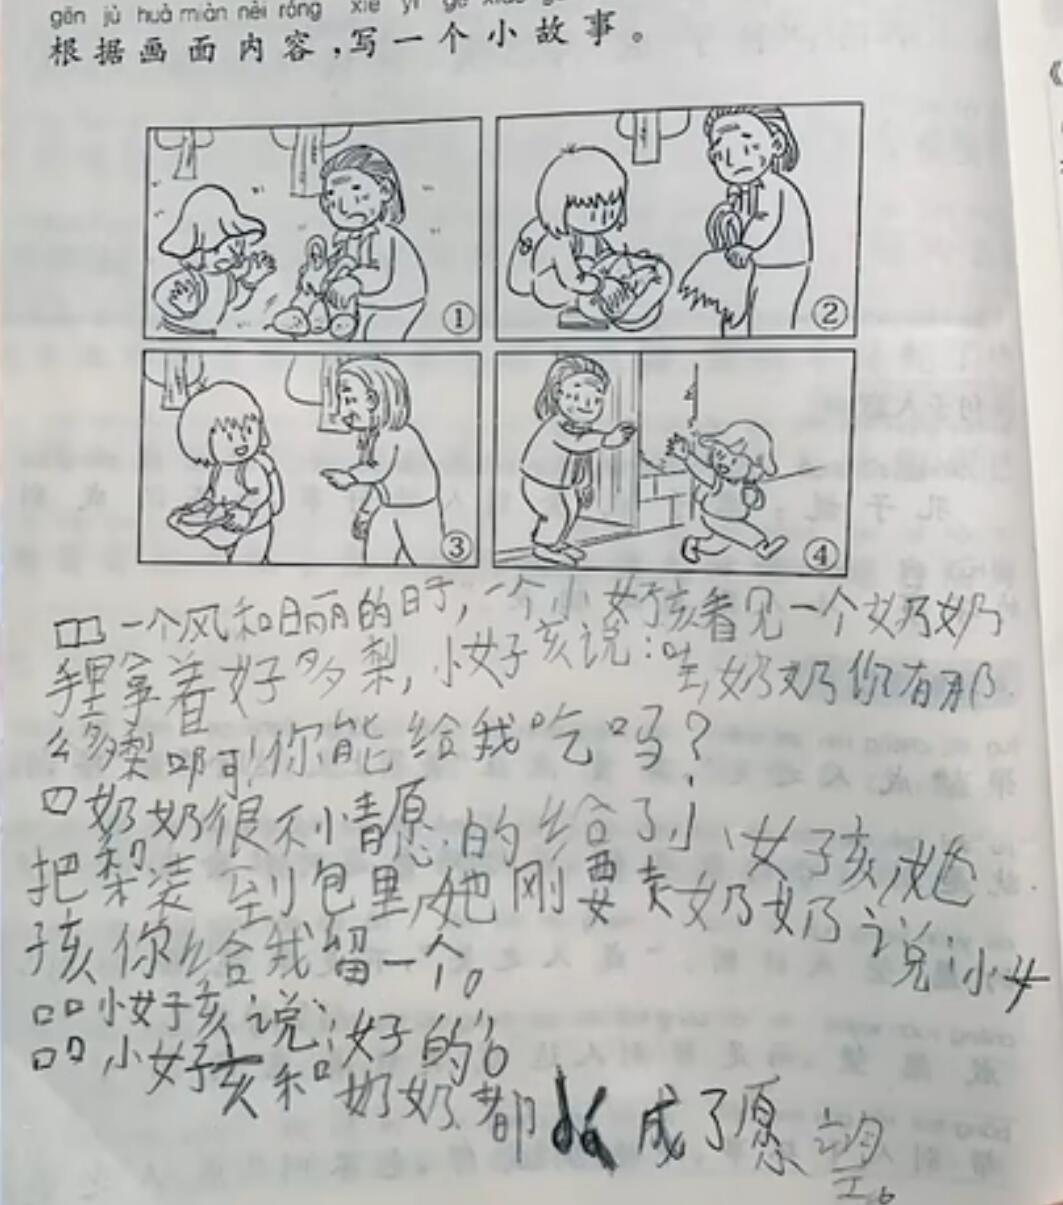 gēn jù huà miàn nèi róng xiě yí gè xiǎo
根据画面内容，写一个小故事。
①
②
③
④
一个风和日丽的日子，一个小女孩看见一个奶奶
手里拿着好多梨，小女孩说：哇，奶奶你有那
么多梨啊！你能给我吃吗？
奶奶很不情愿的给了小女孩，她
把梨装到包里，她刚要走奶奶说：小女
孩你给我留一个。
小女孩说：好的。
小女孩和奶奶都成了愿望。